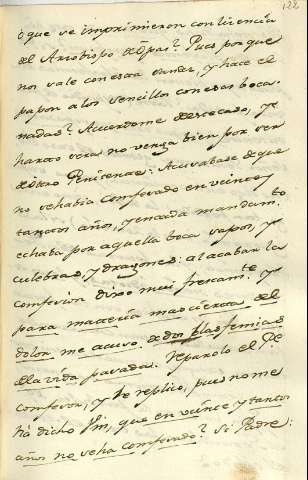 122
ò que se imprimieron con licencia
del Arzobispo de Pas.ª? Pues por que
nos sale con esta y hace el
papon a los sencillos con esas boca-
nadas? Acuerdome de
harto sera no venga bien por ser
de otro Penitente: Acusabase de que
no se havia confesado en veinte y
tantos años, y en cada mandam.to
echaba por aquella boca sapos, y
culebras, y dragones: al acabar la
confesion dixo mui frescam.te y
para materia mas cierta del
dolor me acuso de dos blasfemias
de la vida pasada. Reparolo el P.e
Confesor, y le replicó, pues no me
hà dicho Vm, que en veinte, y tantos
años no se ha confesado? Si Padre: